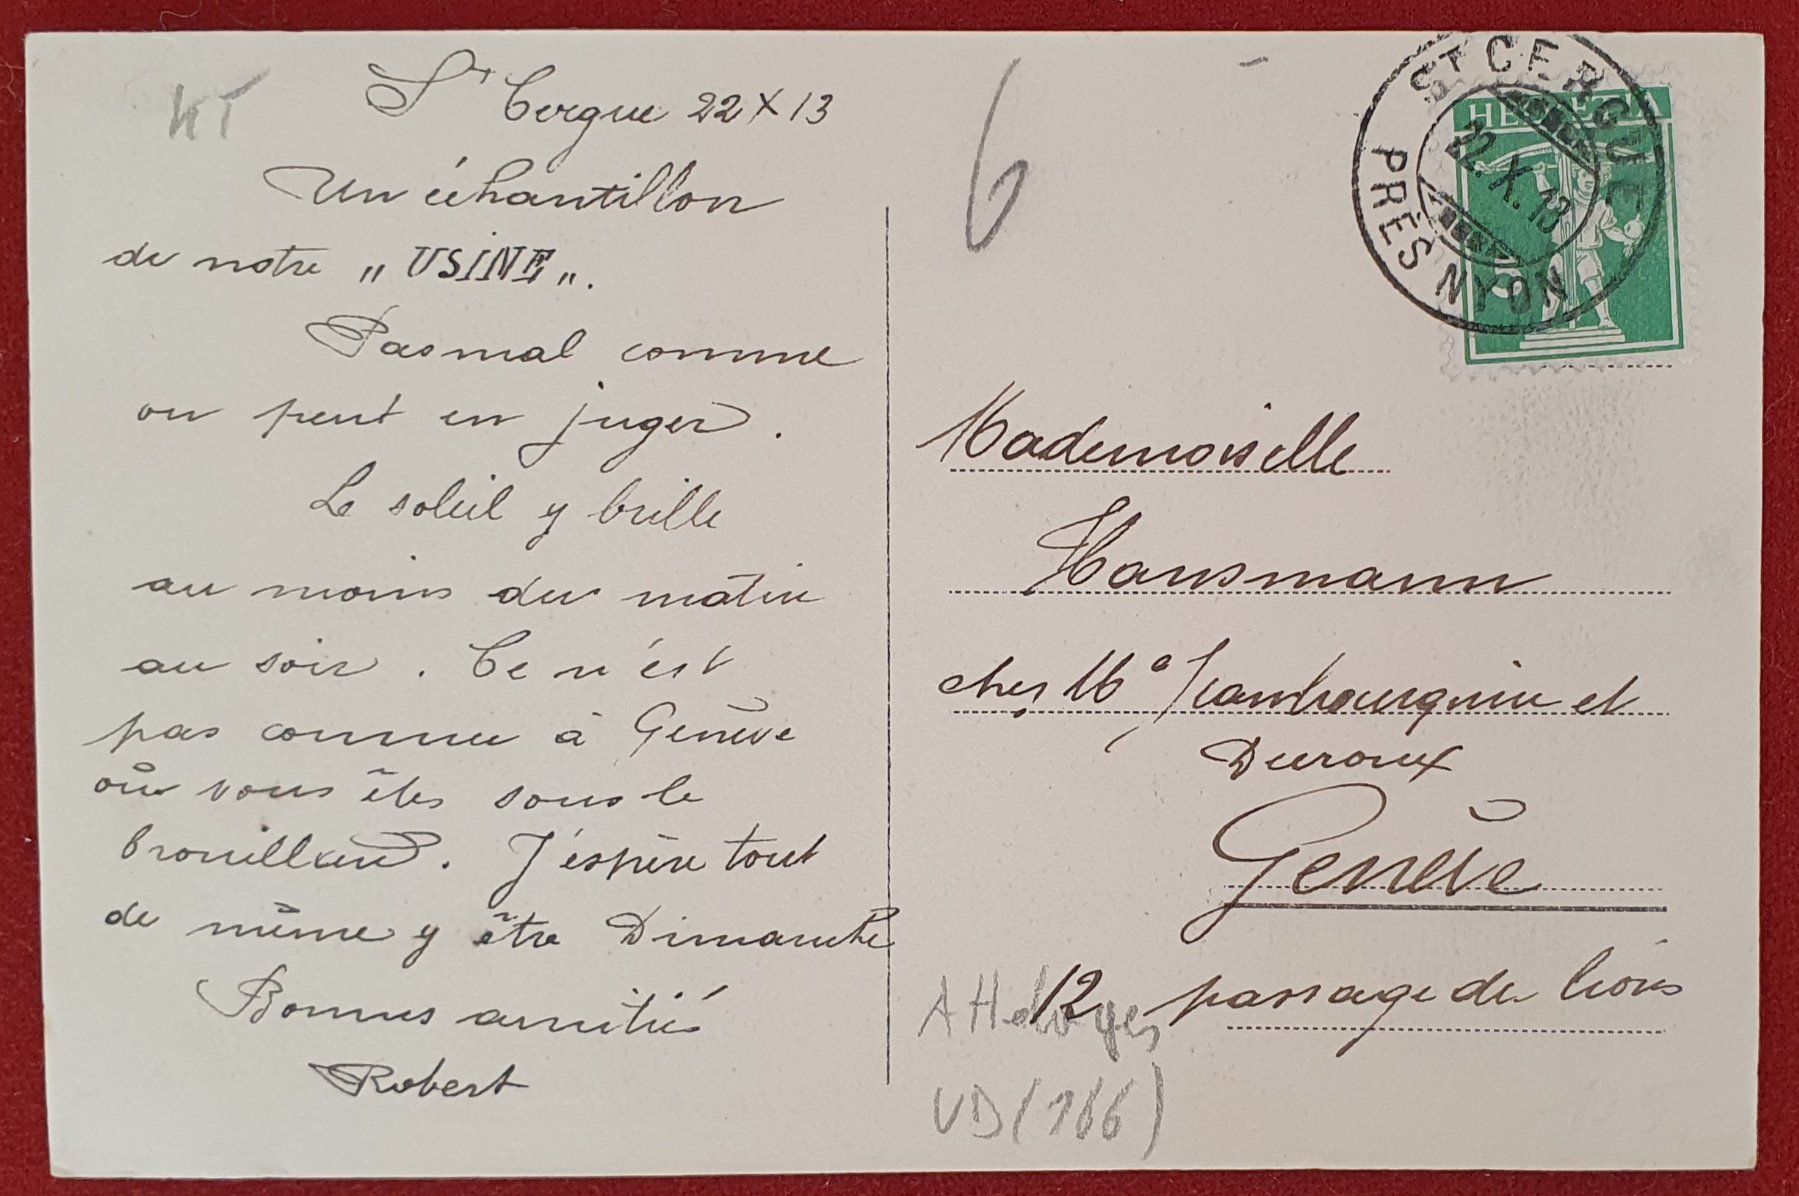 St Cergue 22 X 13
Un échantillon
de notre „ USINE „.
Pas mal comme
on peut en juger.
Le soleil y brille
au moins du matin
au soir. Ce n'est
pas comme à Genève
où vous êtes sous le
brouillard. J'éspère tout
de même y être Dimanche
Bonnes amitiés
Robert
6
ST CERGUE
22.X.13
PRÈS NYON
HELVETIA
Mademoiselle
Hansmann
chez et
Duroux
Genève
12, passage de Lions
VD (166)